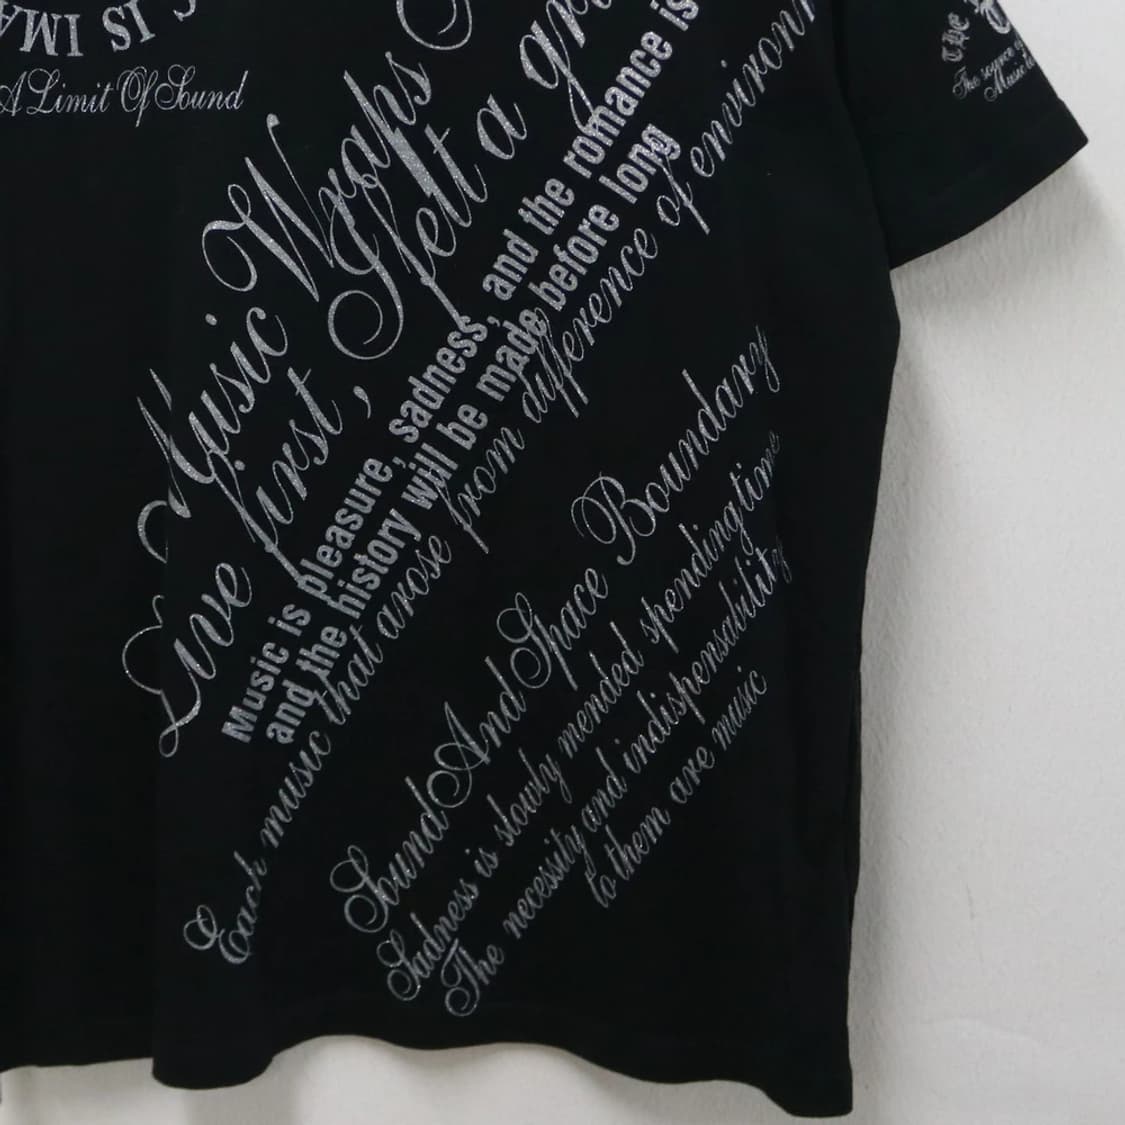 IS IMA
A Limit Of Sound
The source of
Music Wraps
Live first, I felt a
Music is pleasure, sadness, and the romance is
and the history will be made before long
Each music that arose from difference of environ
Sound And Space Boundary
Sadness is slowly mended spending time
The necessity and indispensability
to them are music